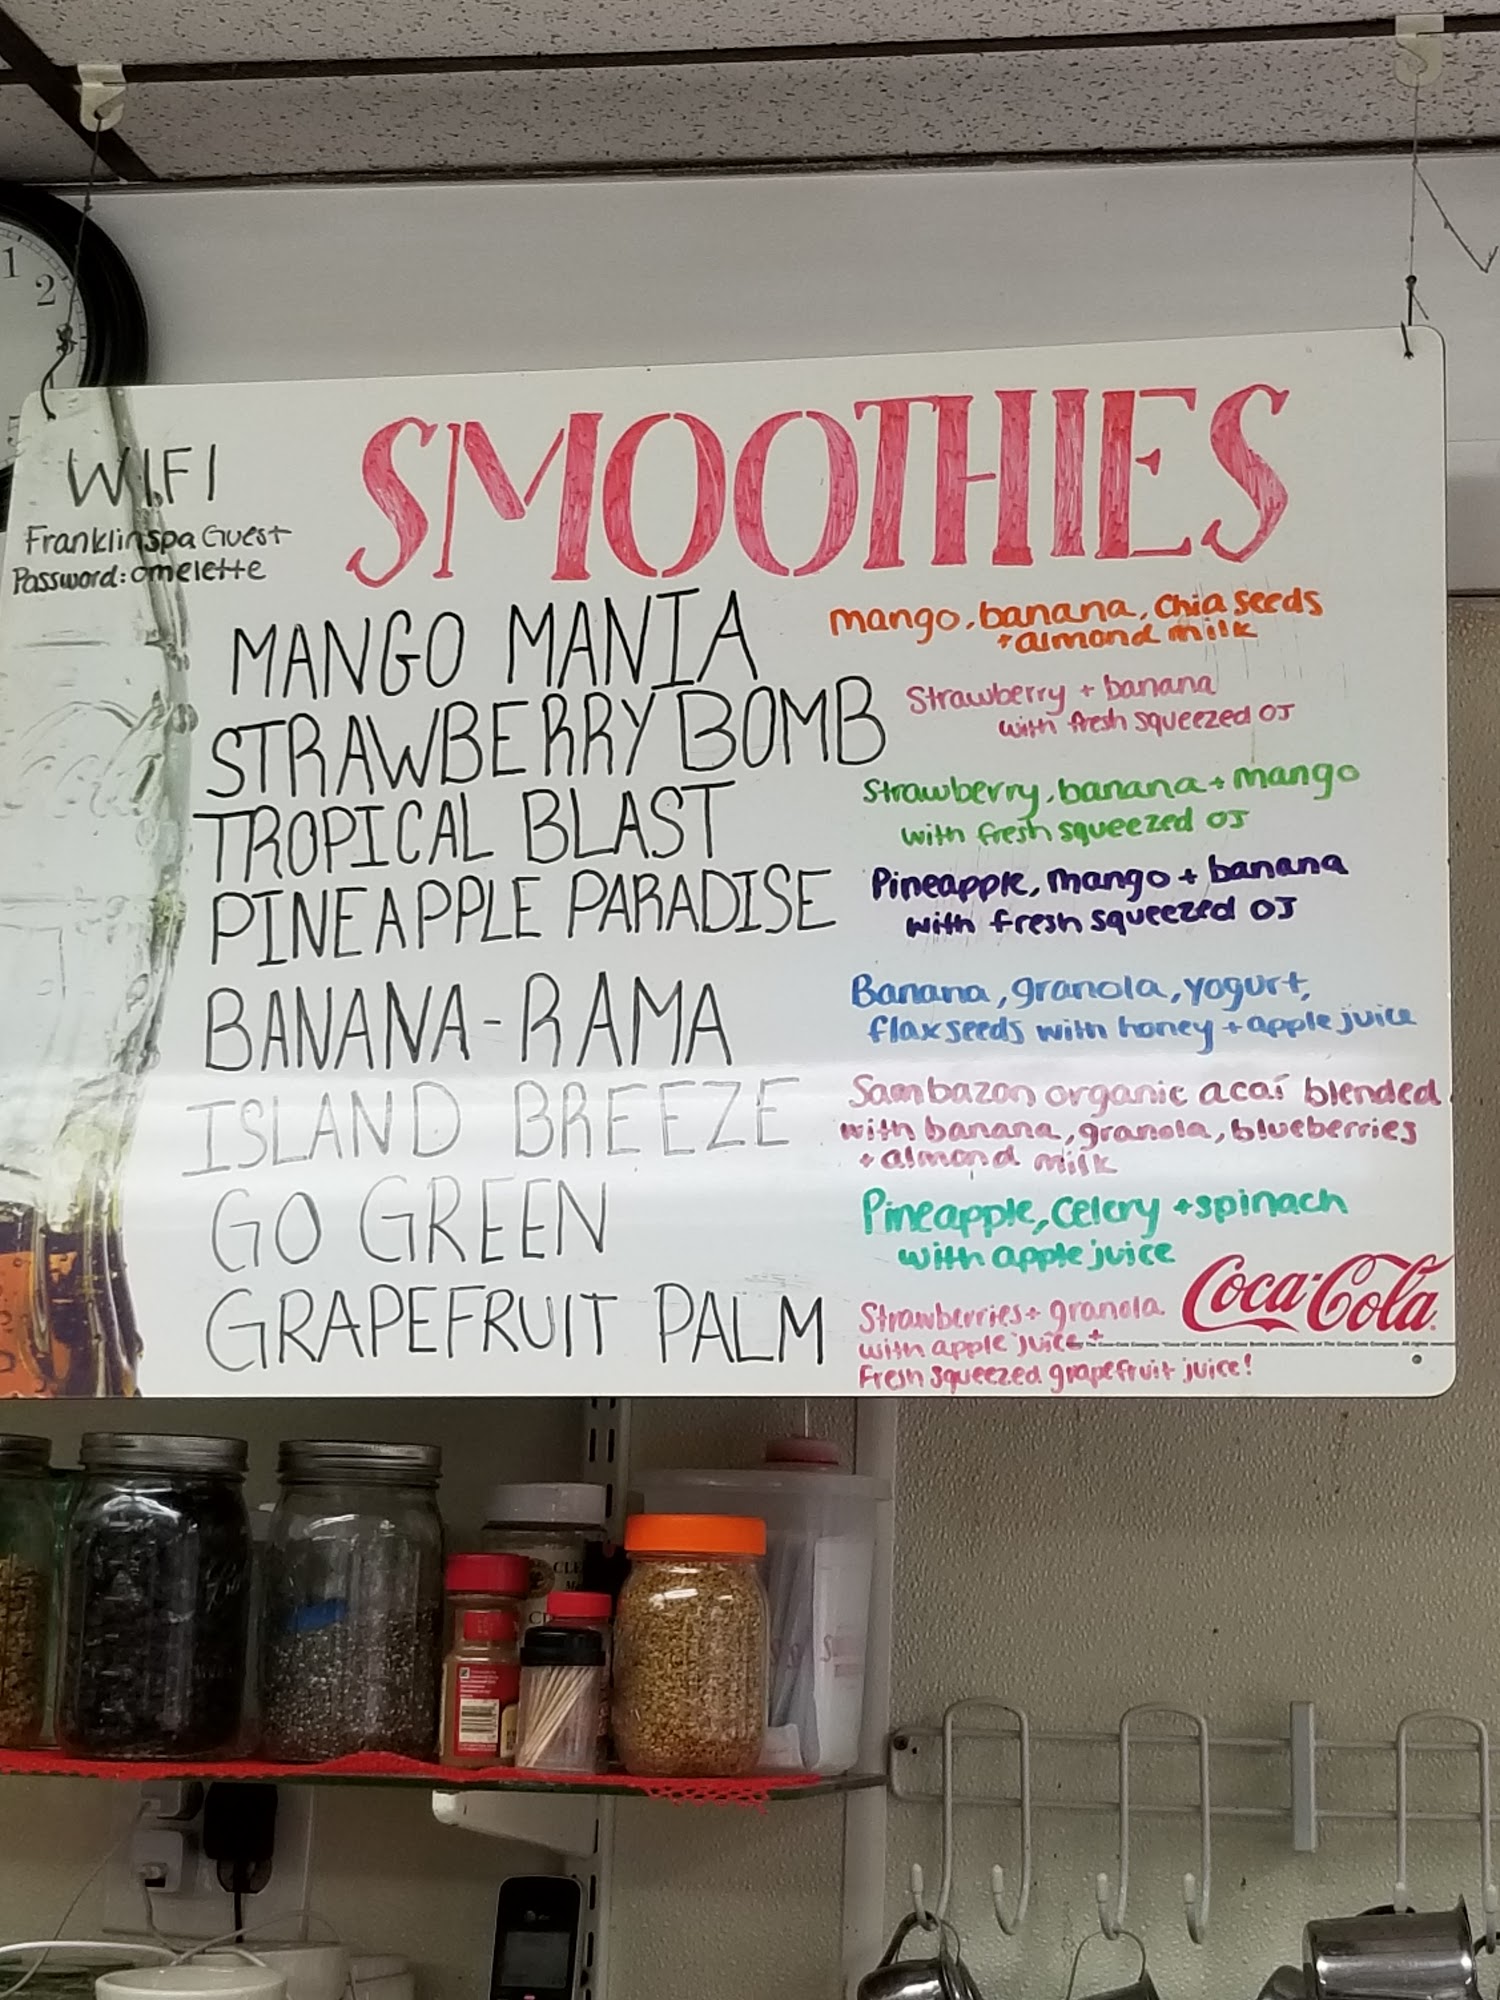 1
2
SMOOTHIES
WIFI
Franklinspa Guest
Password: omelette
MANGO MANIA
mango, banana, chia seeds
+ almond milk
STRAWBERRY BOMB
Strawberry + banana
with fresh squeezed OJ
TROPICAL BLAST
Strawberry, banana + mango
with fresh squeezed OJ
PINEAPPLE PARADISE
Pineapple, mango + banana
with fresh squeezed OJ
BANANA-RAMA
Banana, granola, yogurt,
flax seeds with honey + apple juice
ISLAND BREEZE
Sambazon organic acaí blended
with banana, granola, blueberries
+ almond milk
GO GREEN
Pineapple, Celery + spinach
with apple juice
GRAPEFRUIT PALM
Strawberries + granola
with apple juice +
Fresh squeezed grapefruit juice!
Coca-Cola
at&t